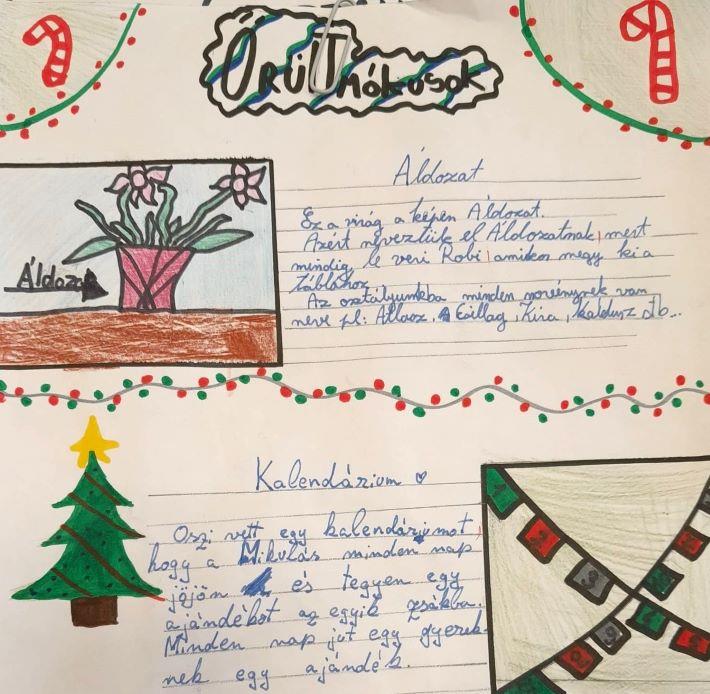 Őrült mókusok
Áldozat
Ez a virág a képen Áldozat.
Azért neveztük el Áldozatnak, mert
mindig le veri Robi, amikor megy ki a
táblához.
Az osztályunkba minden növénynek van
neve pl: Atlasz, Csillag, Kira, Kaktusz stb...
Áldozat
Kalendárium ♡
Oszi vett egy kalendáriumot,
hogy a Mikulás minden nap
jöjön és tegyen egy
ajándékot az egyik zsákba.
Minden nap jut egy gyerek-
nek egy ajándék.